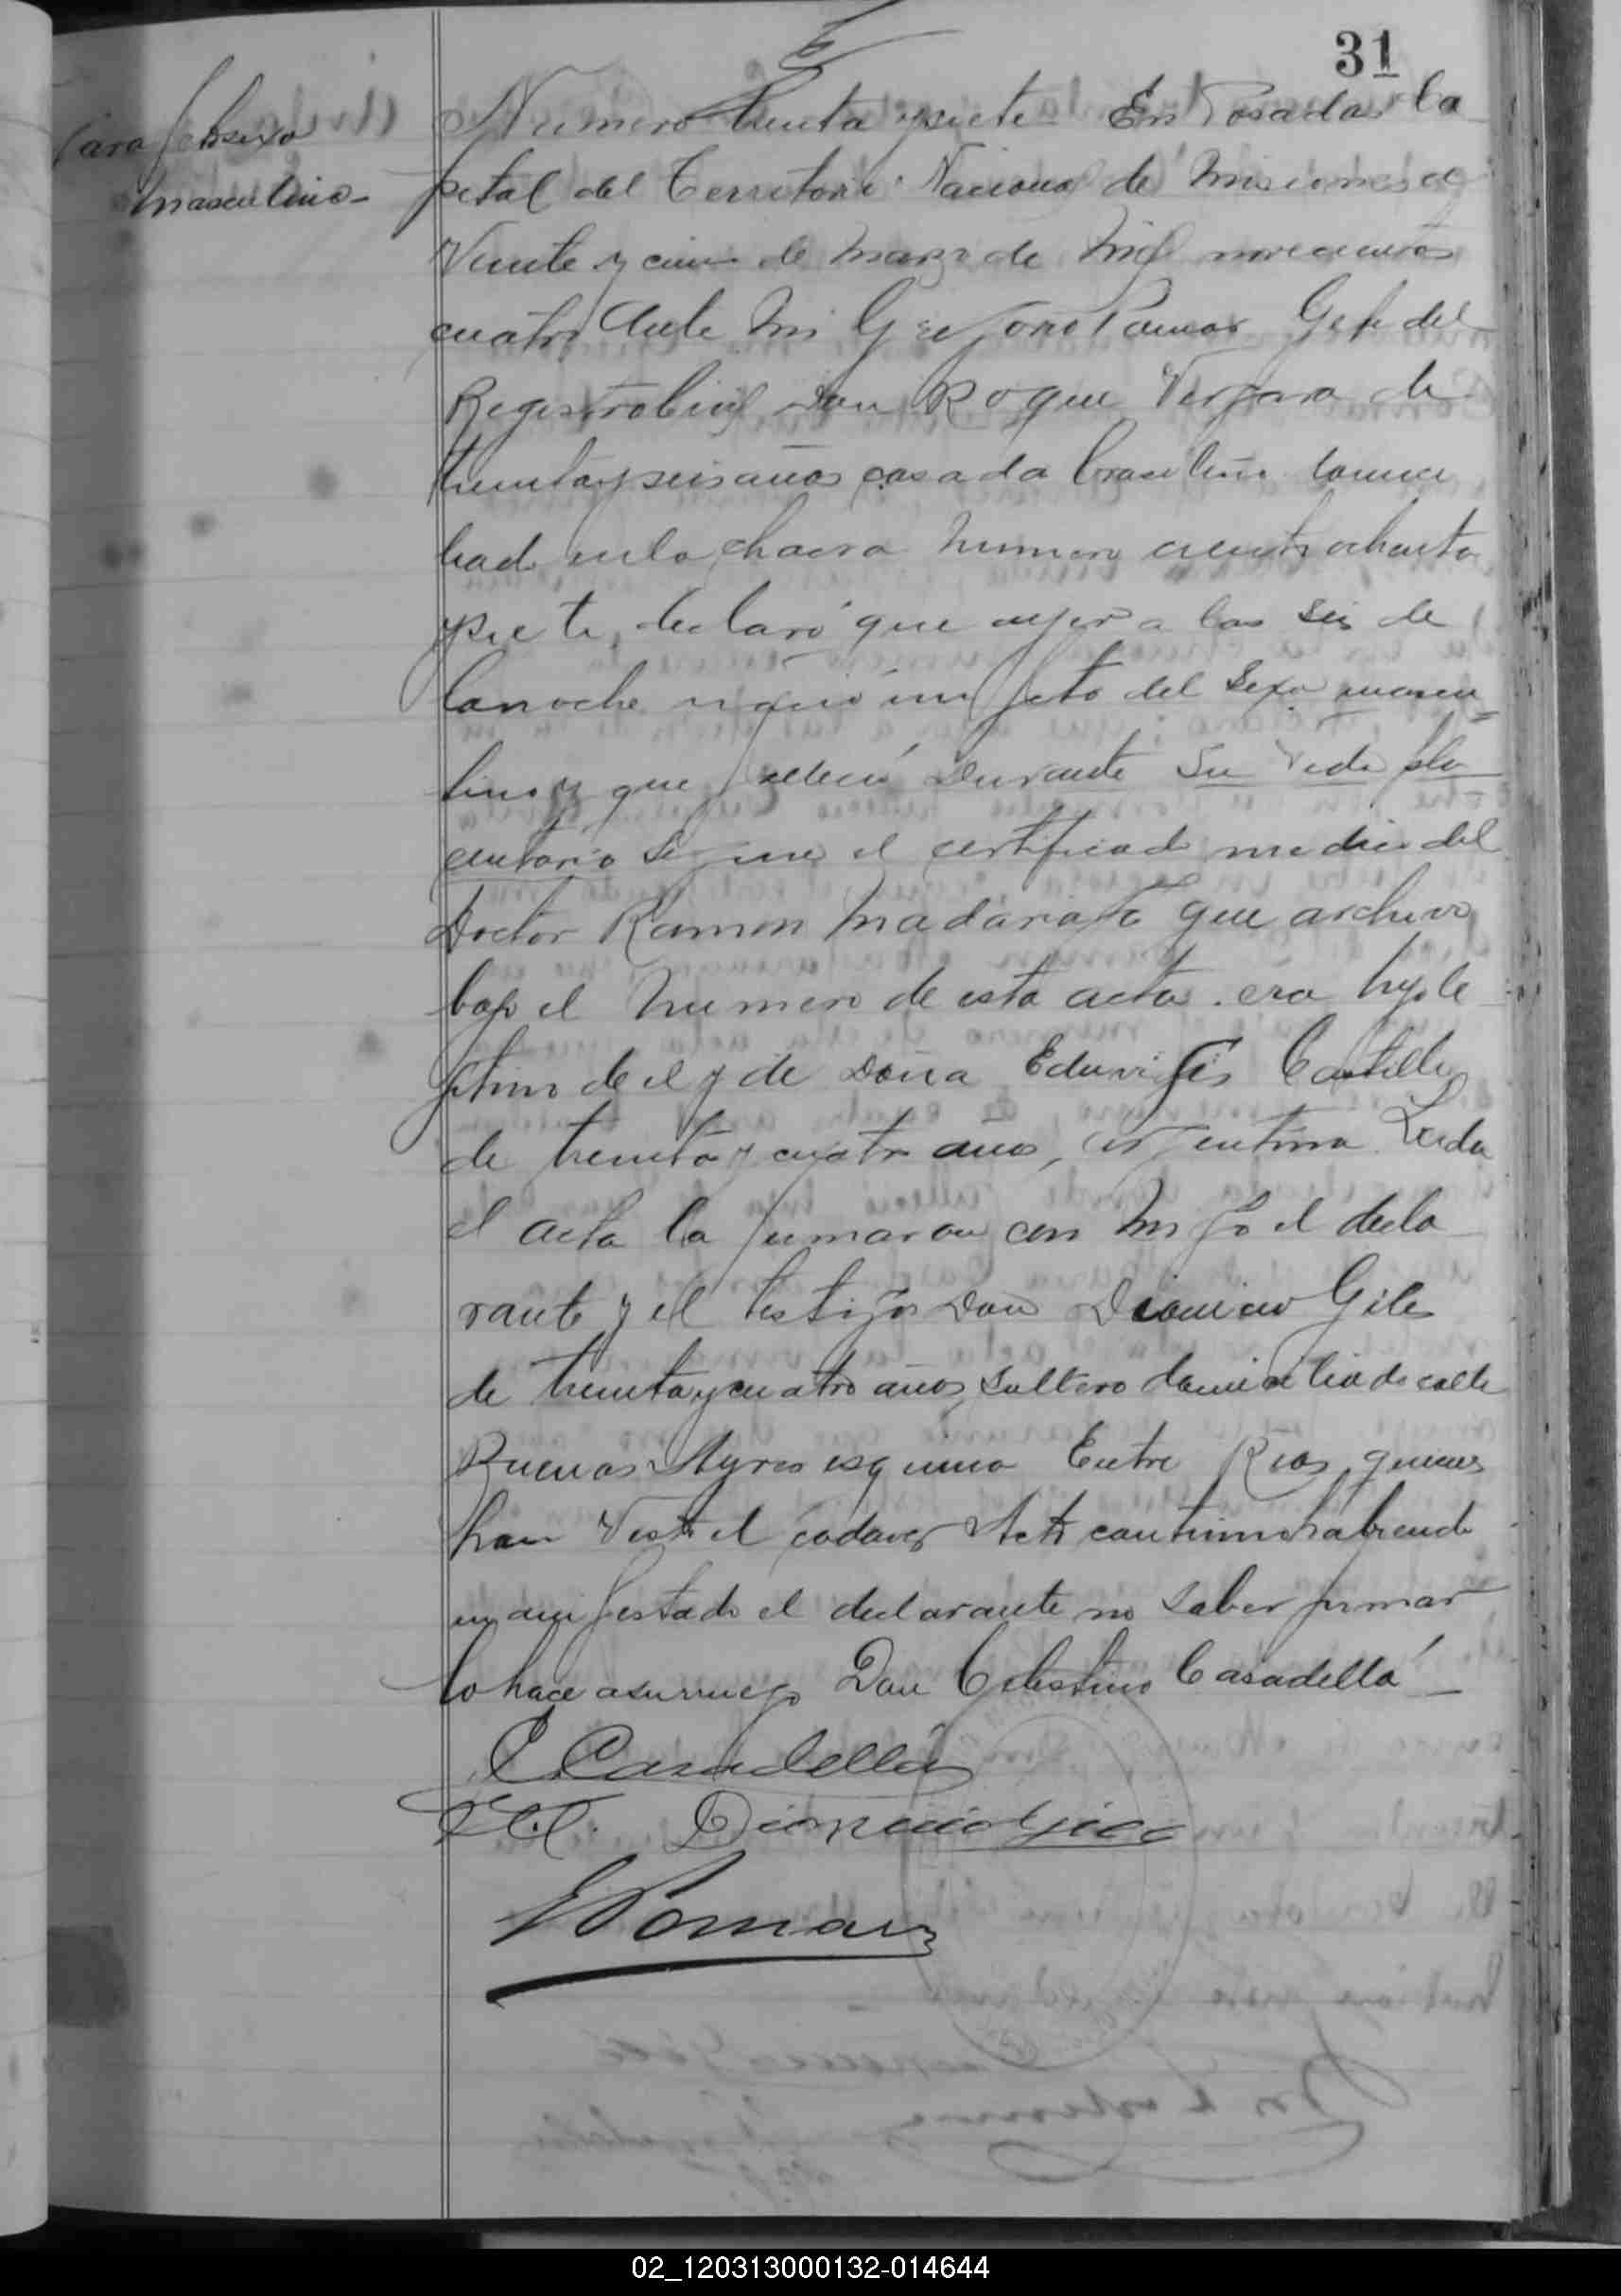 31
feto sexo
masculino-
Numero treinta y siete En Posadas Ca
pital del Territorio Nacional de Misiones a
Veinte y cinco de marzo de mil novecientos
cuatro Ante mi Gregorio Pomar Gefe del
Registro Civil Don Roque Vergara de
treinta y seis años casado brasilero domici
liado en la chacra numero ciento ochenta
y siete, declaró que ayer a las seis de
la noche nació un feto del sexo mascu=
lino y que falleció durante su vida pla
centaria segun el certificado medico del
Doctor Ramon Madariaga que archivo
bajo el numero de esta acta. era hijo le
jitimo de el y de Doña Eduvigis Castillo
de treinta y cuatro años, argentina Leida
el acta la firmaron con migo el decla
rante y el testigo Don Dionicio Giles
de treinta y cuatro años, soltero domiciliado calle
Buenos Ayres esquina Entre Rios, quienes
han visto el cadaver Acto continuo habiendo
manifestado el declarante no saber firmar
lo hace a su ruego Don Celestino Casadellá
C Casadellá
Dionicio Giles
G Pomar
02_120313000132-014644